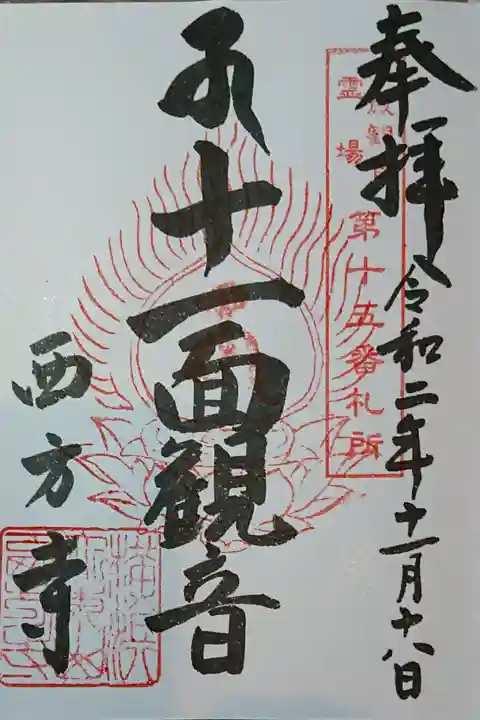 奉拝
令和二年十一月十八日
霊場
第十五番札所
十一面観音
西方寺